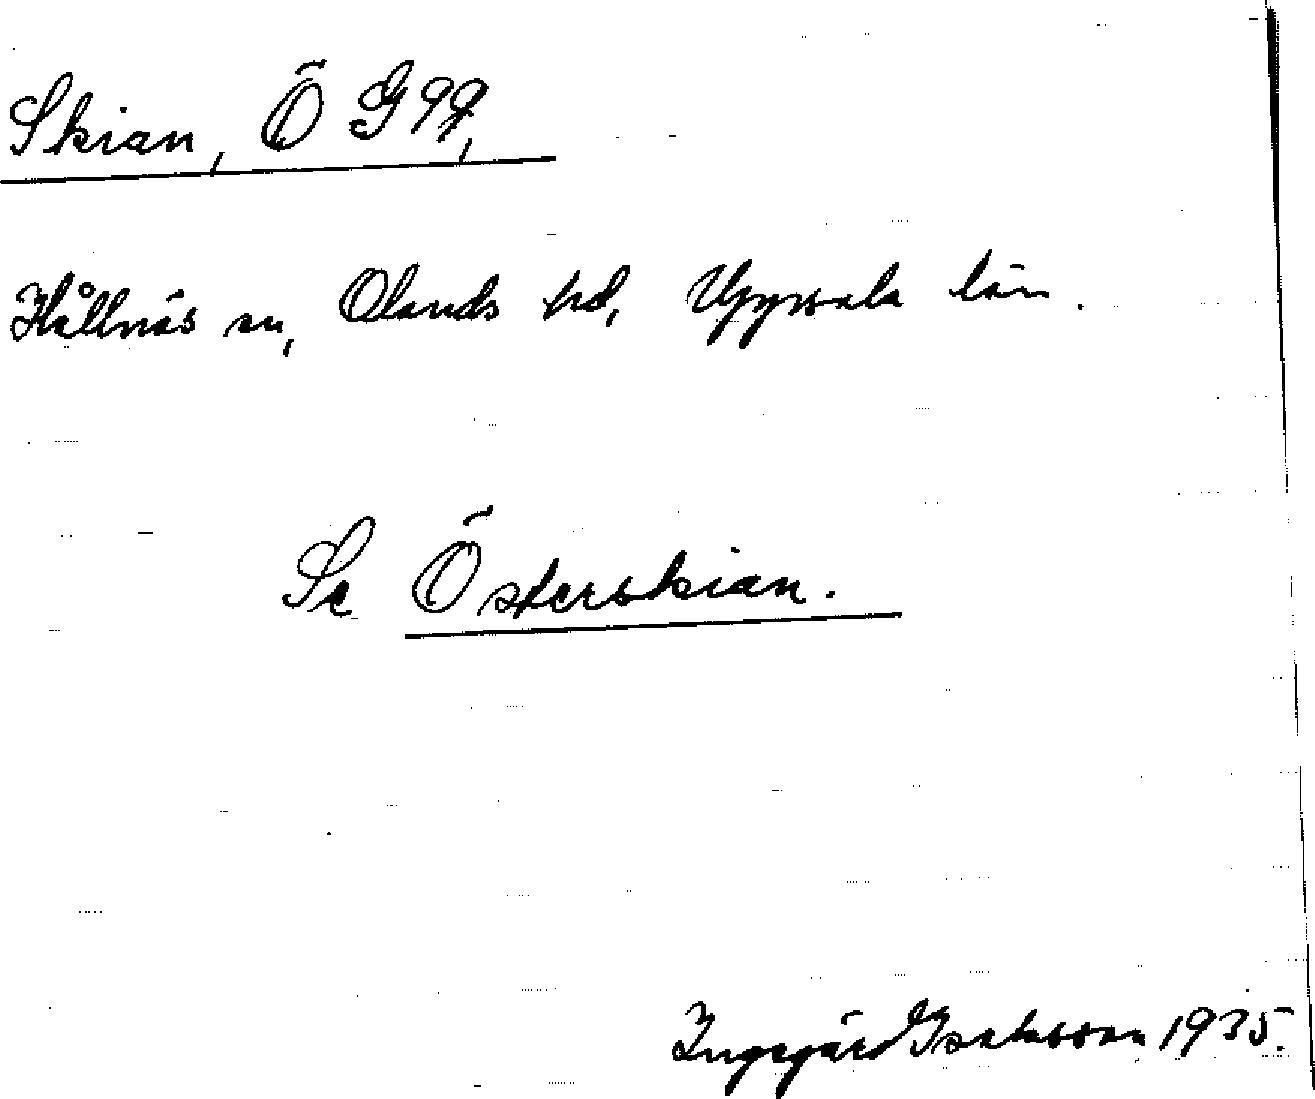 Skian, Ö G 99,
Hållnäs sn, Olands hd, Uppsala län.
Se Österskian.
Ingegärd Isaksson 1935.